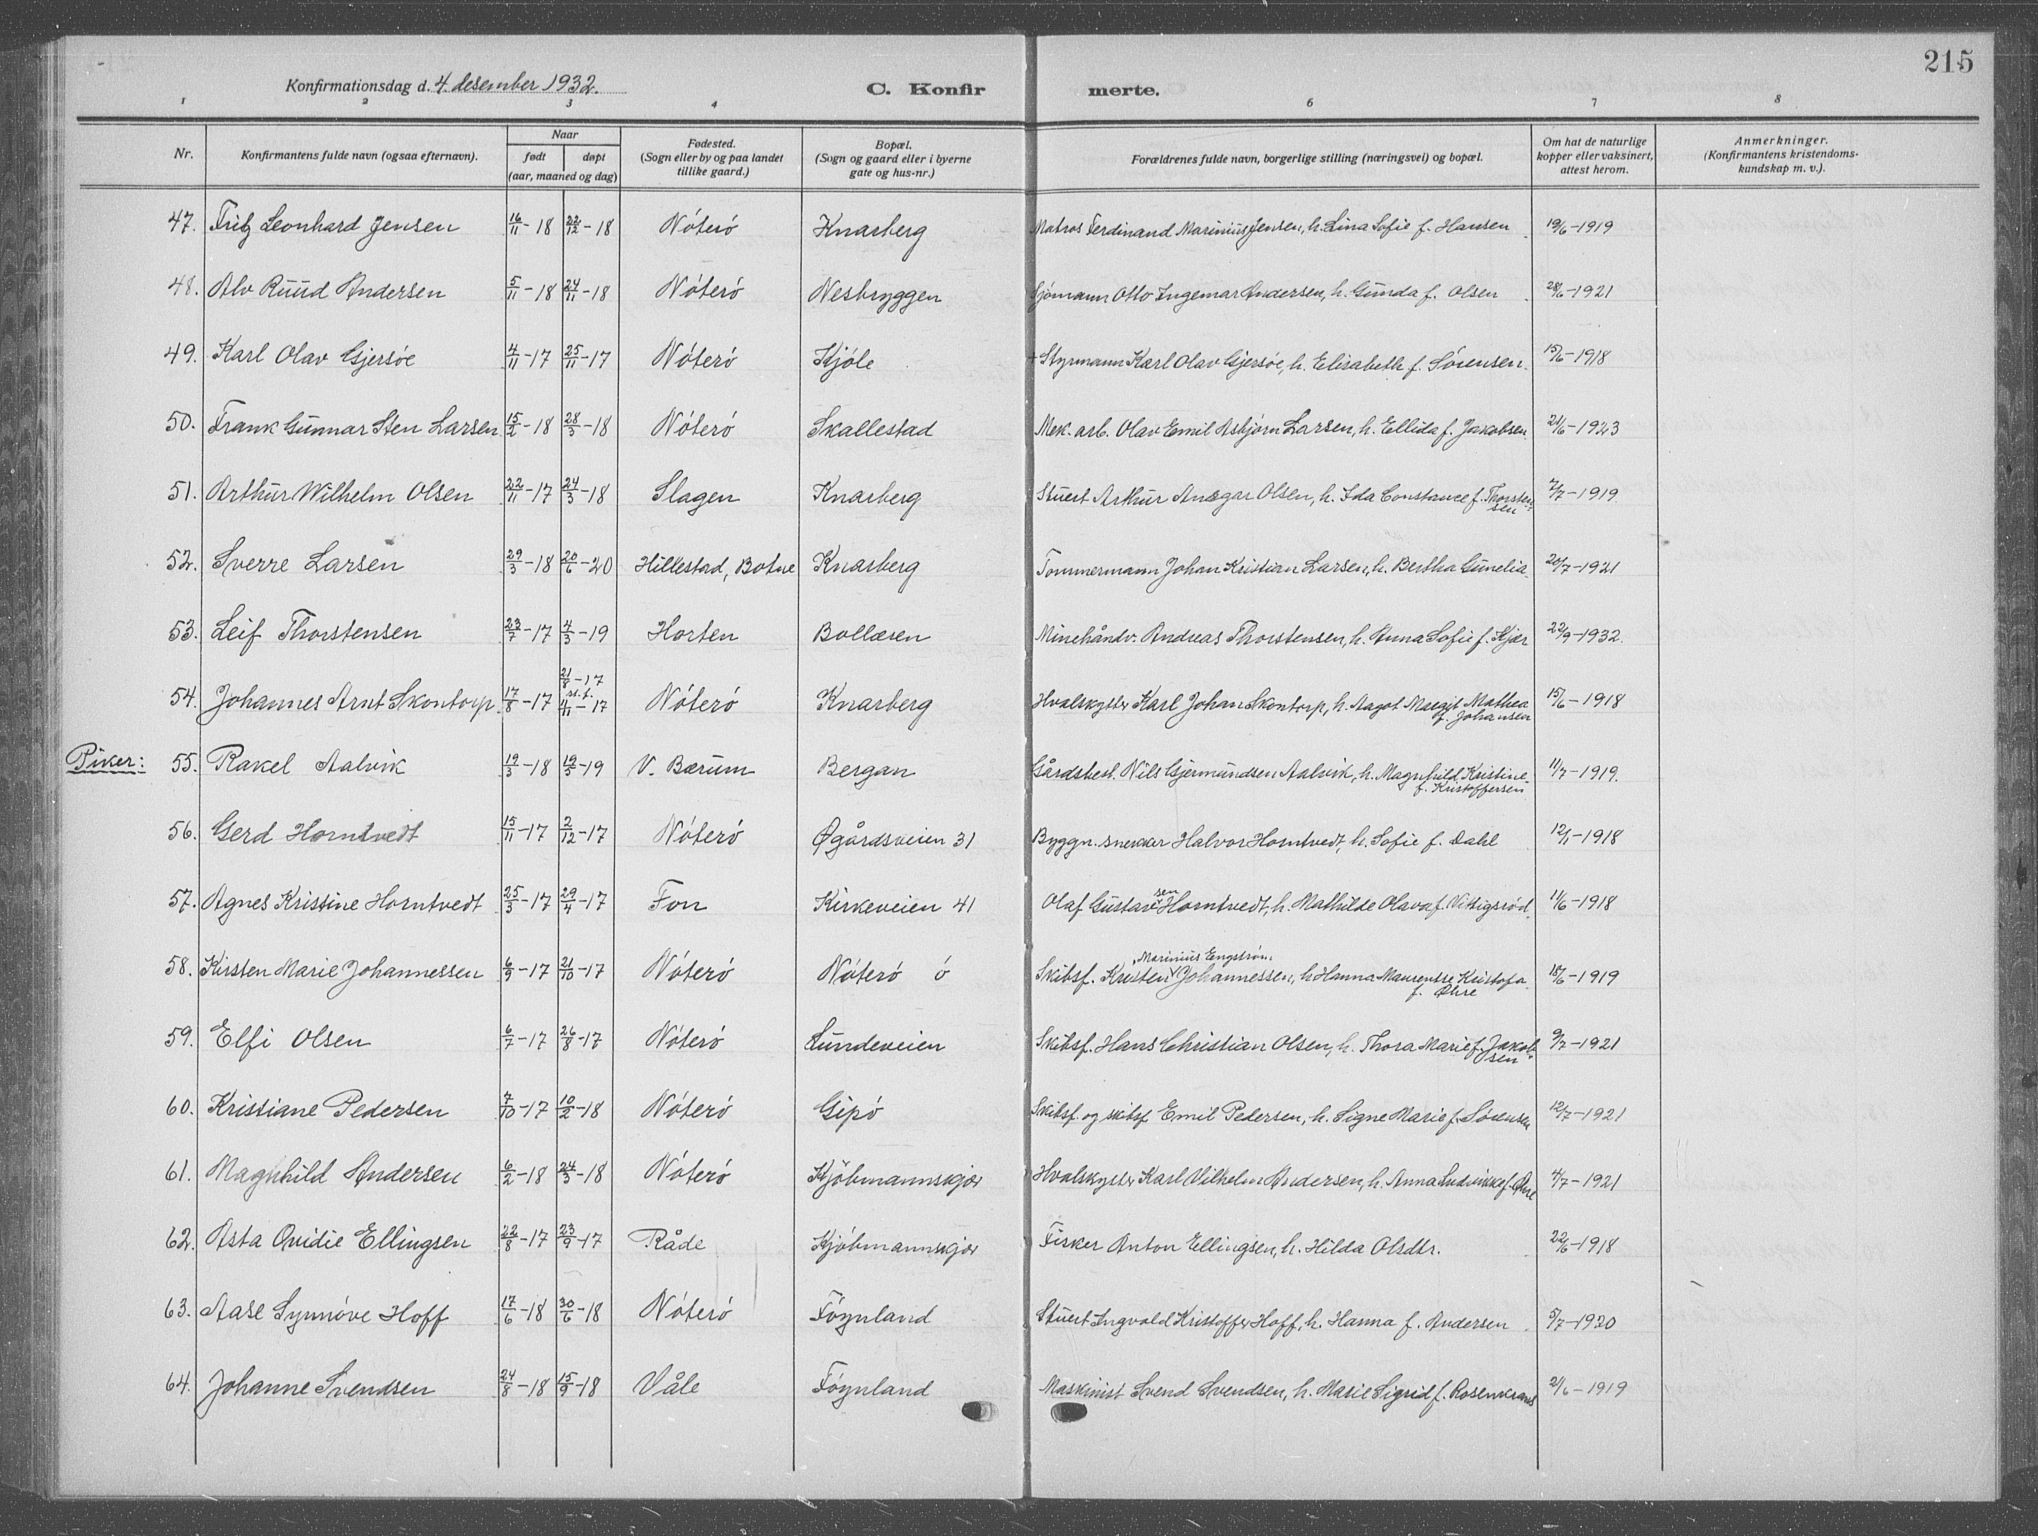 215
Konfirmationsdag d. 4. desember 1932. C. Konfirmerte.
1 2 3 4 6 7 8
Nr. Konfirmantens fulde navn (ogsaa efternavn). Naar født døpt (aar, maaned og dag) Fødested. (Sogn eller by og paa landet tillike gaard.) Bopæl. (Sogn og gaard eller i byerne gate og hus-nr.) Forældrenes fulde navn, borgerlige stilling (næringsvei) og bopæl. Om hat de naturlige kopper eller vaksinert, attest herom. Anmerkninger. (Konfirmantens kristendomskundskap m. v.).
47. Fritz Leonhard Jensen 16/11-18 22/12-18 Nöterö Knarberg Matros Ferdinand Marinius Jensen, h. Lina Sofie f. Hansen 19/6-1919
48. Alv Ruud Andersen 5/11-18 24/11-18 Nöterö Nesbryggen Sjömann Otto Ingemar Andersen, h. Gunda f. Olsen 28/6-1921
49. Karl Olav Gjersöe 4/11-17 25/11-17 Nöterö Kjöle + Styrmann Karl Olav Gjersöe, h. Elisabeth f. Sörensen. 15/6-1918
50. Frank Gunnar Sten Larsen 15/2-18 28/3-18 Nöterö Skallestad Mek. arb. Olav Emil Asbjörn Larsen, h. Ellida f. Jakobsen 21/6-1923
51. Arthur Wilhelm Olsen 22/11-17 24/3-18 Slagen Knarberg Stuert Arthur Ansgar Olsen, h. Ida Constance f. Thorstensen 7/7-1919.
52. Sverre Larsen 29/3-18 20/6-20 Hillestad, Botne Knarberg Tömmermann Johan Kristian Larsen, h. Bertha Gunelia. 20/7-1921
53. Leif Thorstensen 23/7-17 4/3-19 Horten Bollæren Minehåndv. Andreas Thorstensen, h. Anna Sofie f. Kjær 22/9-1932.
54. Johannes Arnt Skontorp 17/8-17 21/8-17 st. f. 4/11-17 Nöterö Knarberg Hvalskytter Karl Johan Skontorp, h. Aagot Mathea f. Johansen 15/6-1918
Piker:
55. Rakel Aalvik 19/3-18 19/5-19 V. Bærum Bergan Gårdsbest. Nils Gjermundsen Aalvik, h. Magnhild Kristine f. Kristoffersen 11/7-1919.
56. Gerd Horntvedt 15/11-17 2/12-17 Nöterö Øgårdsveien 31 Byggn.snekker Halvor Horntvedt, h. Sofie f. Dahl 12/1-1918
57. Agnes Kristine Horntvedt 25/3-17 29/4-17 Fon Kirkeveien 41 Olaf Gustavsen Horntvedt, h. Mathilde Olava f. Vittigsröd. 11/6-1918
58. Kirsten Marie Johannessen 6/9-17 21/10-17 Nöterö Nöterö ö Skibsf. Kristen Marinius Engström Johannessen, h. Hanna Maurentse Kristofa f. Øhre 18/6-1919
59. Elfi Olsen 6/7-17 26/8-17 Nöterö Lundeveien Skibsf. Hans Christian Olsen, h. Thora Marie f. Jakobsen 9/7-1921
60. Kristiane Pedersen 7/10-17 10/2-18 Nöterö Gipö Skibsf. og skibsf Emil Pedersen, h. Signe Marie f. Sörensen 12/7-1921
61. Magnhild Andersen 6/2-18 24/3-18 Nöterö Kjöbmannskjær Hvalskytter Karl Vilhelm Andersen, h. Anna Ludvikke f. Øhre 4/7-1921
62. Asta Ovidie Ellingsen 22/8-17 23/9-17 Råde Kjöbmannskjær Fisker Anton Ellingsen, h. Hilda Olsdtr. 22/6-1918
63. Aase Synnöve Hoff 17/6-18 30/6-18 Nöterö Föynland Stuert Ingvald Kristoffer Hoff, h. Hanna f. Andersen 5/7-1920
64. Johanne Svendsen 24/8-18 15/9-18 Våle Föynland Maskinist Svend Svendsen, h. Marie Sigrid f. Rosenkrans 21/6-1919